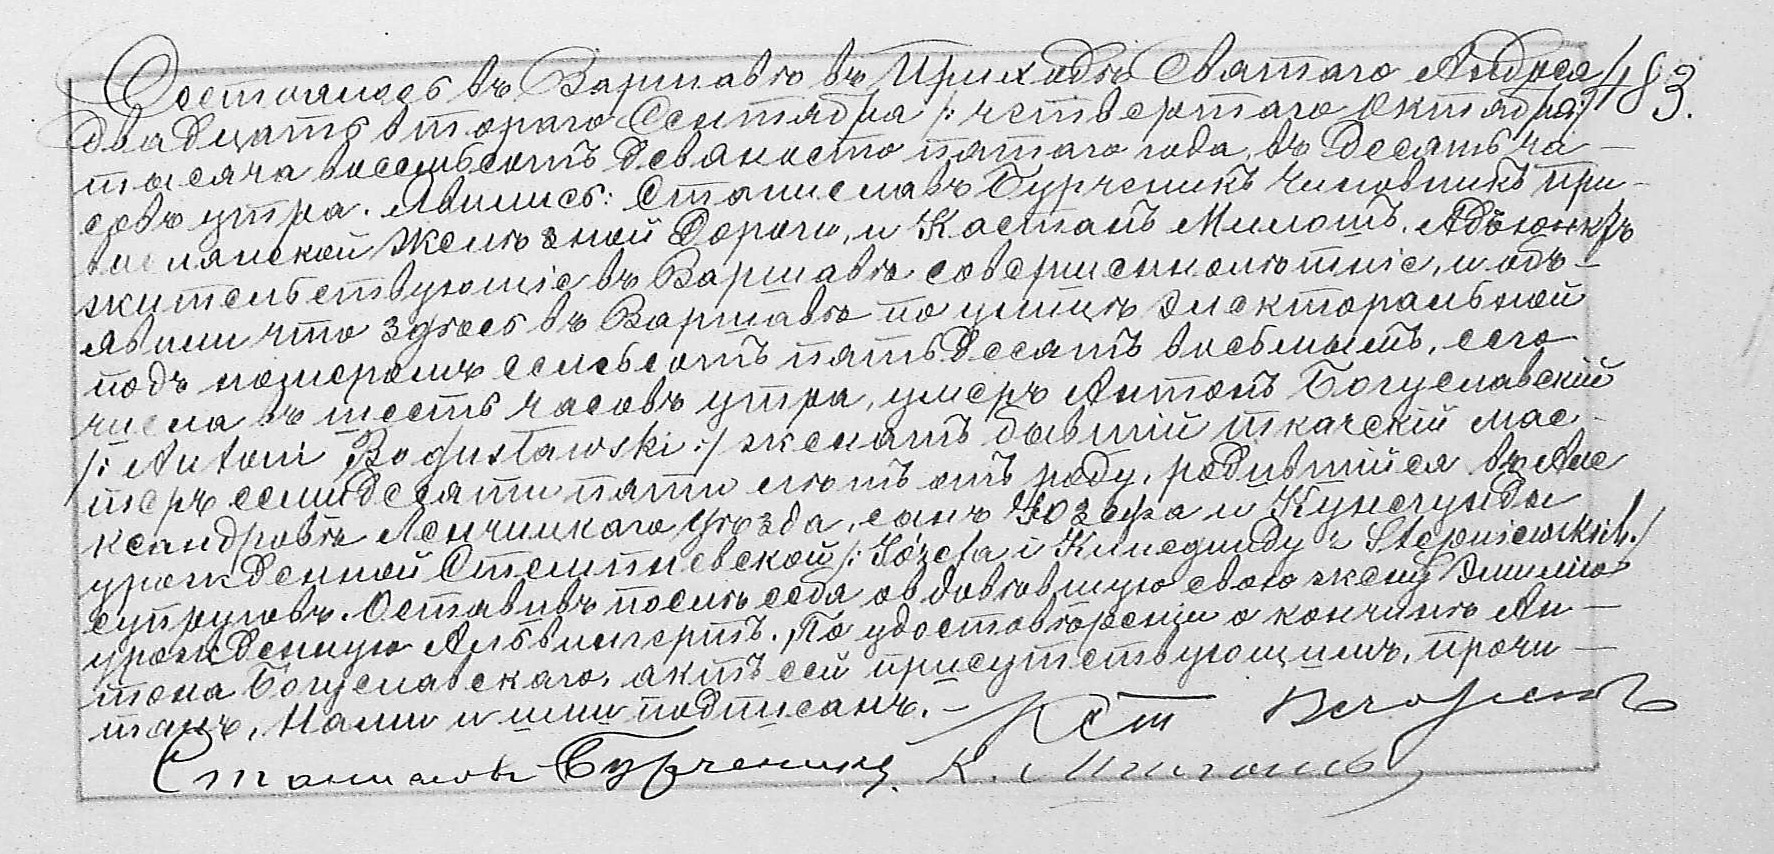 Состоялось въ Варшавѣ въ Приходѣ Святаго Андрея 483.
двадцать втораго Сентября /: четвертаго Октября :/
тысяча восемьсотъ девяносто пятаго года, въ десять ча-
совъ утра. Явились: Станиславъ Бурченикъ чиновникъ При-
вислянской желѣзной дороги, и Каетанъ Милошъ, Адъюнктъ
жительствующіе въ Варшавѣ совершеннолѣтніе, и объ-
явили что здѣсь въ Варшавѣ по улицѣ Электоральной
подъ номеромъ семьсотъ пятьдесятъ восьмымъ, сего
числа въ шесть часовъ утра, умеръ Антонъ Богуславскій
/: Antoni Bogusławski :/ женатъ бывшій ткачскій мас-
теръ семидесяти пяти лѣтъ отъ роду, родившійся въ Але
ксандровѣ Ленчицкаго уѣзда, сынъ Юзефа и Кунегунды
урожденной Стемпневской /: Józefa i Kunegundy z Stępniewskich :/
супруговъ. Оставивъ послѣ себя овдовѣвшую свою жену Эмилію
урожденную Альвингертъ. По удостовѣреніи о кончинѣ Ан-
тона Богуславскаго, актъ сей присутствующимъ, прочи-
танъ, Нами и ими подписанъ. -
Станиславъ Бурченикъ. К. Милошъ